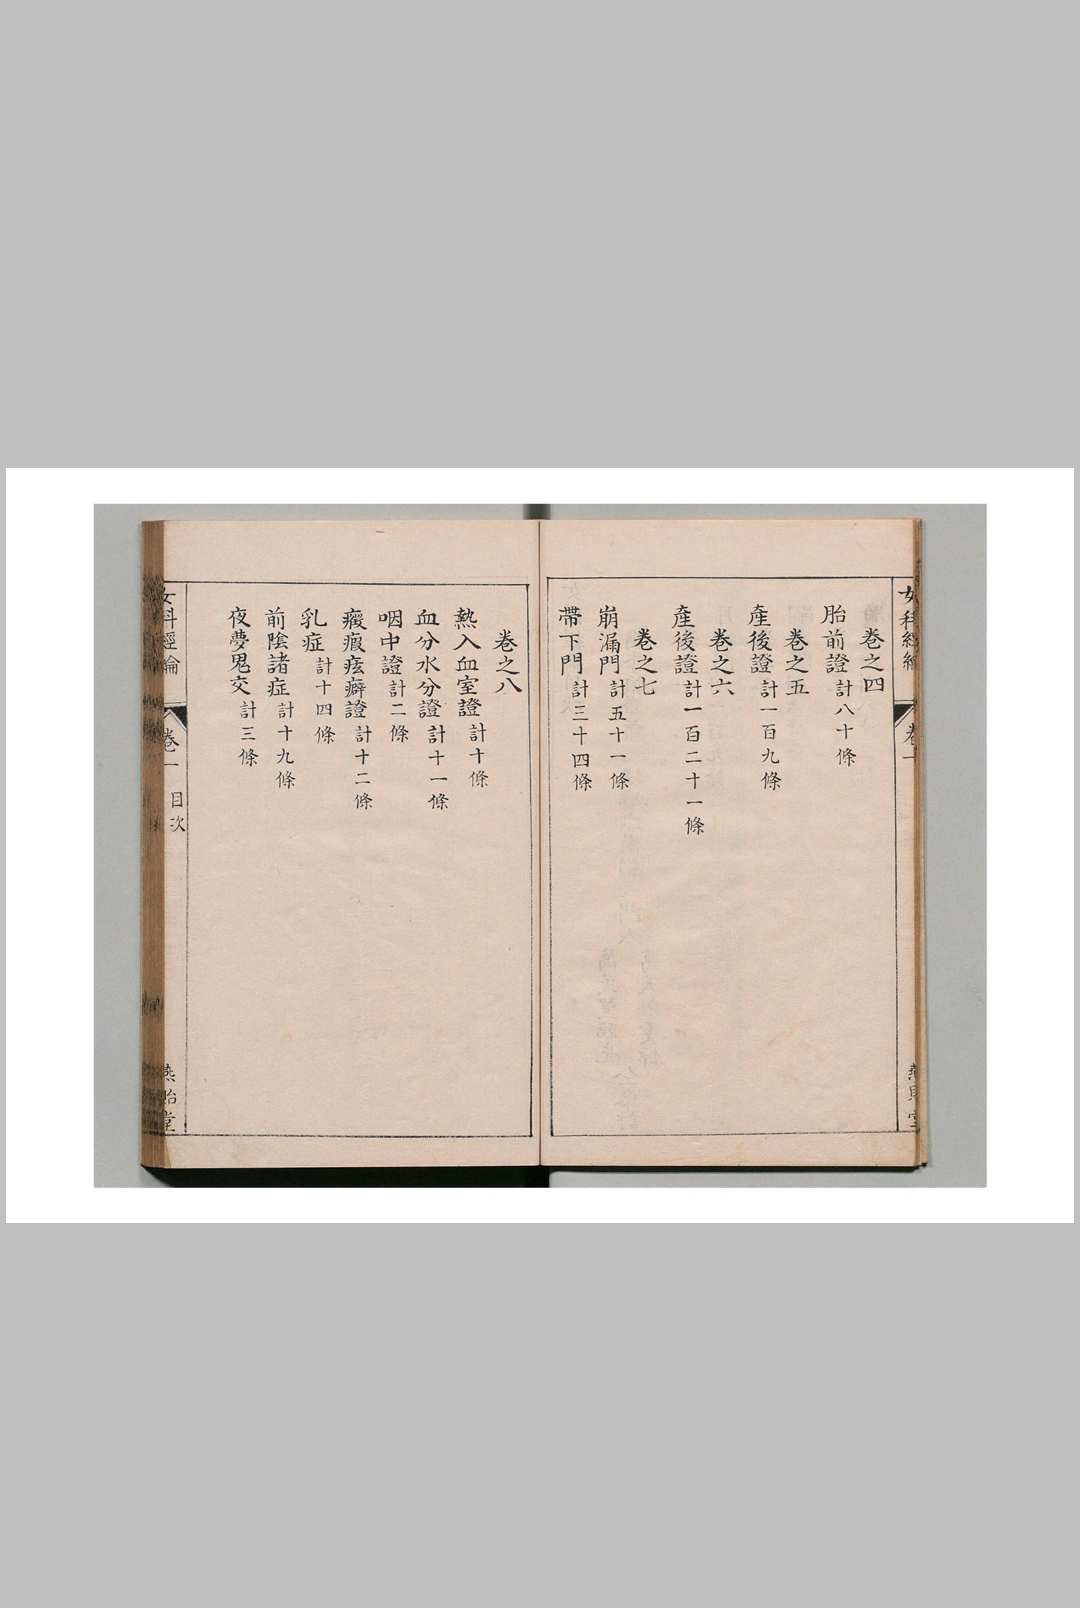 女科經綸 卷一
卷之四
胎前證 計八十條
卷之五
產後證 計一百九條
卷之六
產後證 計一百二十一條
卷之七
崩漏門 計五十一條
帶下門 計三十四條
卷之八
熱入血室證 計十條
血分水分證 計十一條
咽中證 計二條
癥瘕痃癖證 計十二條
乳症 計十四條
前陰諸症 計十九條
夜夢鬼交 計三條
女科經綸 卷一 目次 燕貽堂